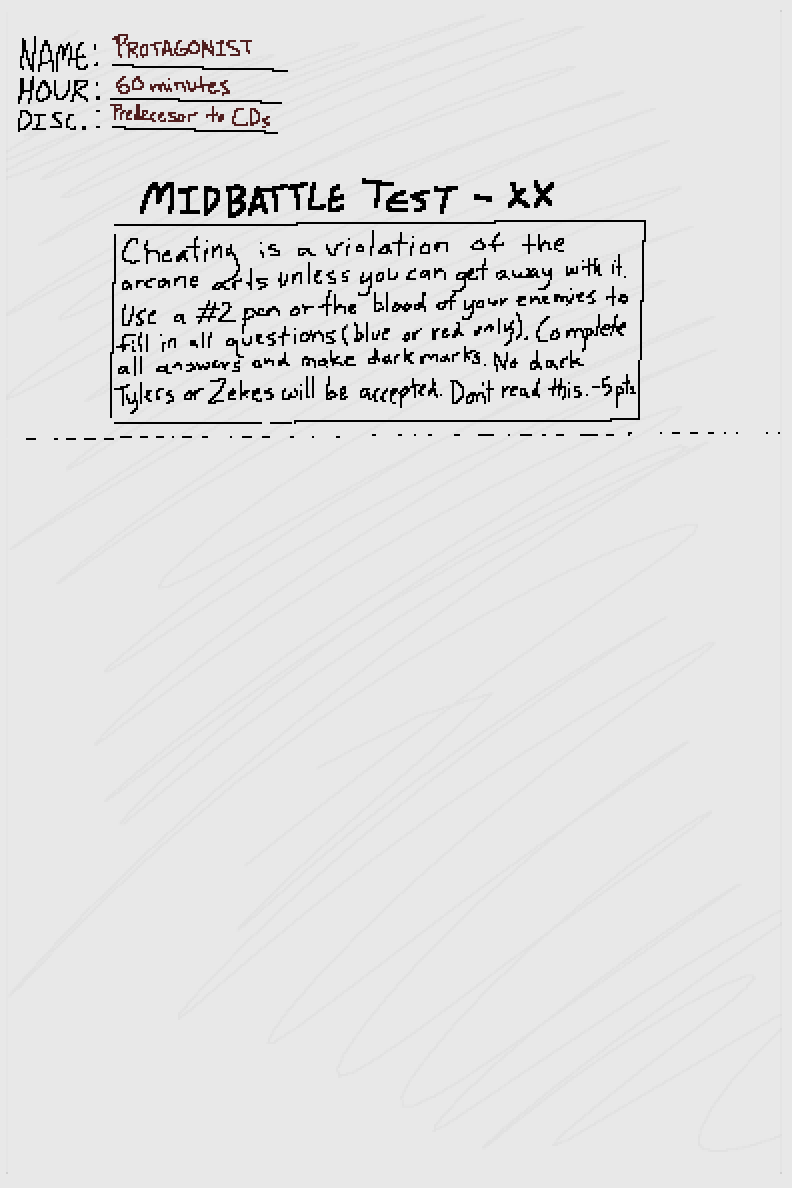 NAME: PROTAGONIST
HOUR: 60 minutes
DISC.: Predecesor to CDs
MIDBATTLE TEST - XX
Cheating is a violation of the
arcane arts unless you can get away with it.
Use a #2 pen or the blood of your enemies to
fill in all questions (blue or red only). Complete
all answers and make dark marks. No dark
Tylers or Zekes will be accepted. Don't read this. -5 pts